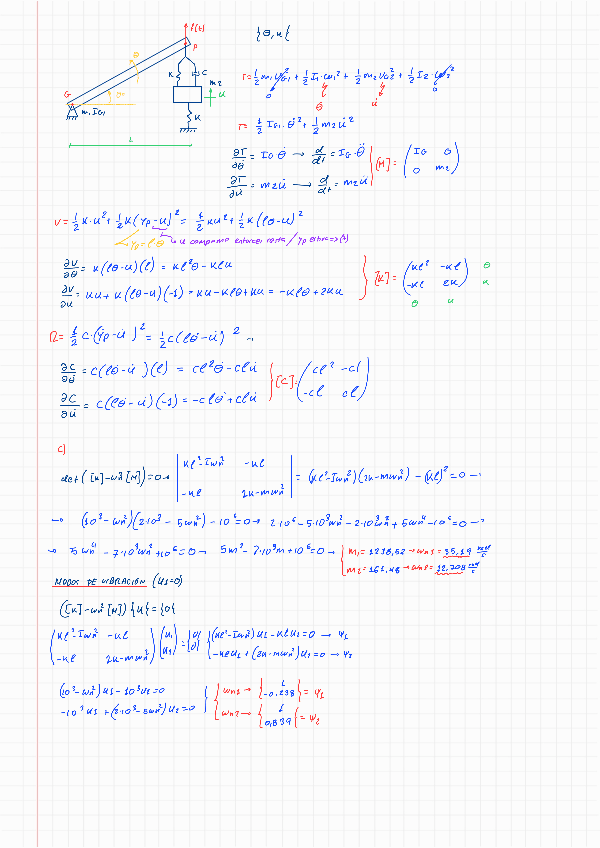 {θ, u{
f(t)
P
θ
K
C
m2
u
G
30
m, IG1
K
L
T = 1/2 m1 vG1² + 1/2 I1·ω1² + 1/2 m2 vG2² + 1/2 I2·ω2²
0 θ̇ u̇ 0
T = 1/2 IG1·θ̇² + 1/2 m2 u̇²
∂T/∂θ̇ = IG·θ̇ → d/dt = IG·θ̈
∂T/∂u̇ = m2u̇ → d/dt = m2ü
[M] = (IG 0
0 m2)
V = 1/2 K·u² + 1/2 K(yp-u)² = 1/2 Ku² + 1/2 K(lθ-u)²
yp = lθ
∂V/∂θ = K(lθ-u)(l) = Kl²θ - Klu
∂V/∂u = Ku + K(lθ-u)(-1) = Ku - Klθ + Ku = -Klθ + 2Ku
[K] = (Kl² -Kl
-Kl 2K)
θ
u
θ u
Ω = 1/2 C·(ẏp - u̇)² = 1/2 C(lθ̇-u̇)² →
∂C/∂θ̇ = C(lθ̇-u̇)(l) = Cl²θ̇ - Clu̇
∂C/∂u̇ = C(lθ̇-u̇)(-1) = -Clθ̇ + Clu̇
[C] = (Cl² -Cl
-Cl Cl)
C)
det([K]-ωn²[M]) = 0 → |Kl²-Iωn² -Kl
-Kl 2K-mωn²| = (Kl²-Iωn²)(2K-mωn²) - (Kl)² = 0 →
→ (10³-ωn²)(2·10³ - 5ωn²) - 10⁶ = 0 → 2·10⁶ - 5·10³ωn² - 2·10³ωn² + 5ωn⁴ - 10⁶ = 0 →
→ 5ωn⁴ - 7·10³ωn² + 10⁶ = 0 → 5m² - 7·10³m + 10⁶ = 0 →
m1 = 1238,52 → ωn1 = 35,19 rad/s
m2 = 161,48 → ωn2 = 12,708 rad/s
MODOS DE VIBRACIÓN (u1=0)
([K]-ωn²[M]) {u{ = {0{
(Kl²-Iωn² -Kl
-Kl 2K-mωn²) {u1 u2} = {0 0}
(Kl²-Iωn²)u1 - Klu2 = 0 → ψ1
-Klu1 + (2K-mωn²)u2 = 0 → ψ2
(10³-ωn²)u1 - 10³u2 = 0
-10³u1 + (2·10³-5ωn²)u2 = 0
ωn1 → {1
-0,238{ = ψ1
ωn2 → {1
0,839{ = ψ2